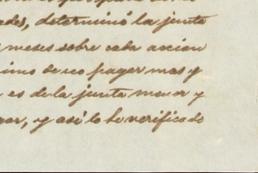 des, determino la junta
meses sobre cada accion
de no pagar mas y
es de la junta menor y
, y asi lo he verificado